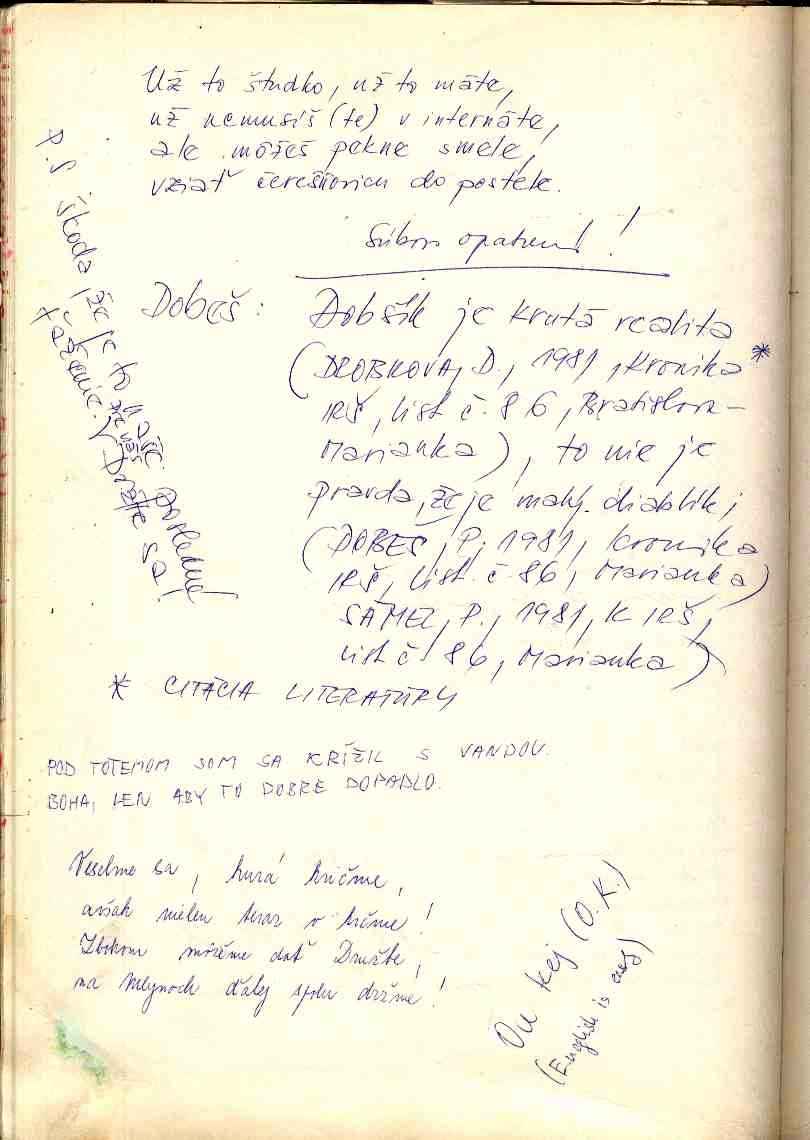 Už to študko, už to máte,
už nemusíš (te) v internáte,
ale môžeš pekne smele,
vziať do postele.
Súbor opatrení!
Dobeš: Dobšík je krutá realita
(DROBKOVA, D., 1981, Kronika *
IRŠ, list č. 86, Bratislava-
Marianka), to nie je
pravda, že je malý diablik;
(DOBEŠ, P., 1981, Kronika
IRŠ, list č. 86, Marianka)
SÁMEL, P., 1981, K IRŠ,
list č. 86, Marianka)
* CITÁCIA LITERATÚRY
P.S. Škoda, že je to naše posledné
ťaženie. Držte sa!
POD TOTEMOM SOM SA KRÍŽIL S VANDOU.
BOHA, LEN ABY TO DOBRE DOPADLO.
Veseľme sa, hurá kričme,
avšak nielen teraz v krčme!
Zbohom môžeme dať Družbe,
na Mlynoch ďalej spolu držme!
Ou kej (O.K.)
(English is easy)